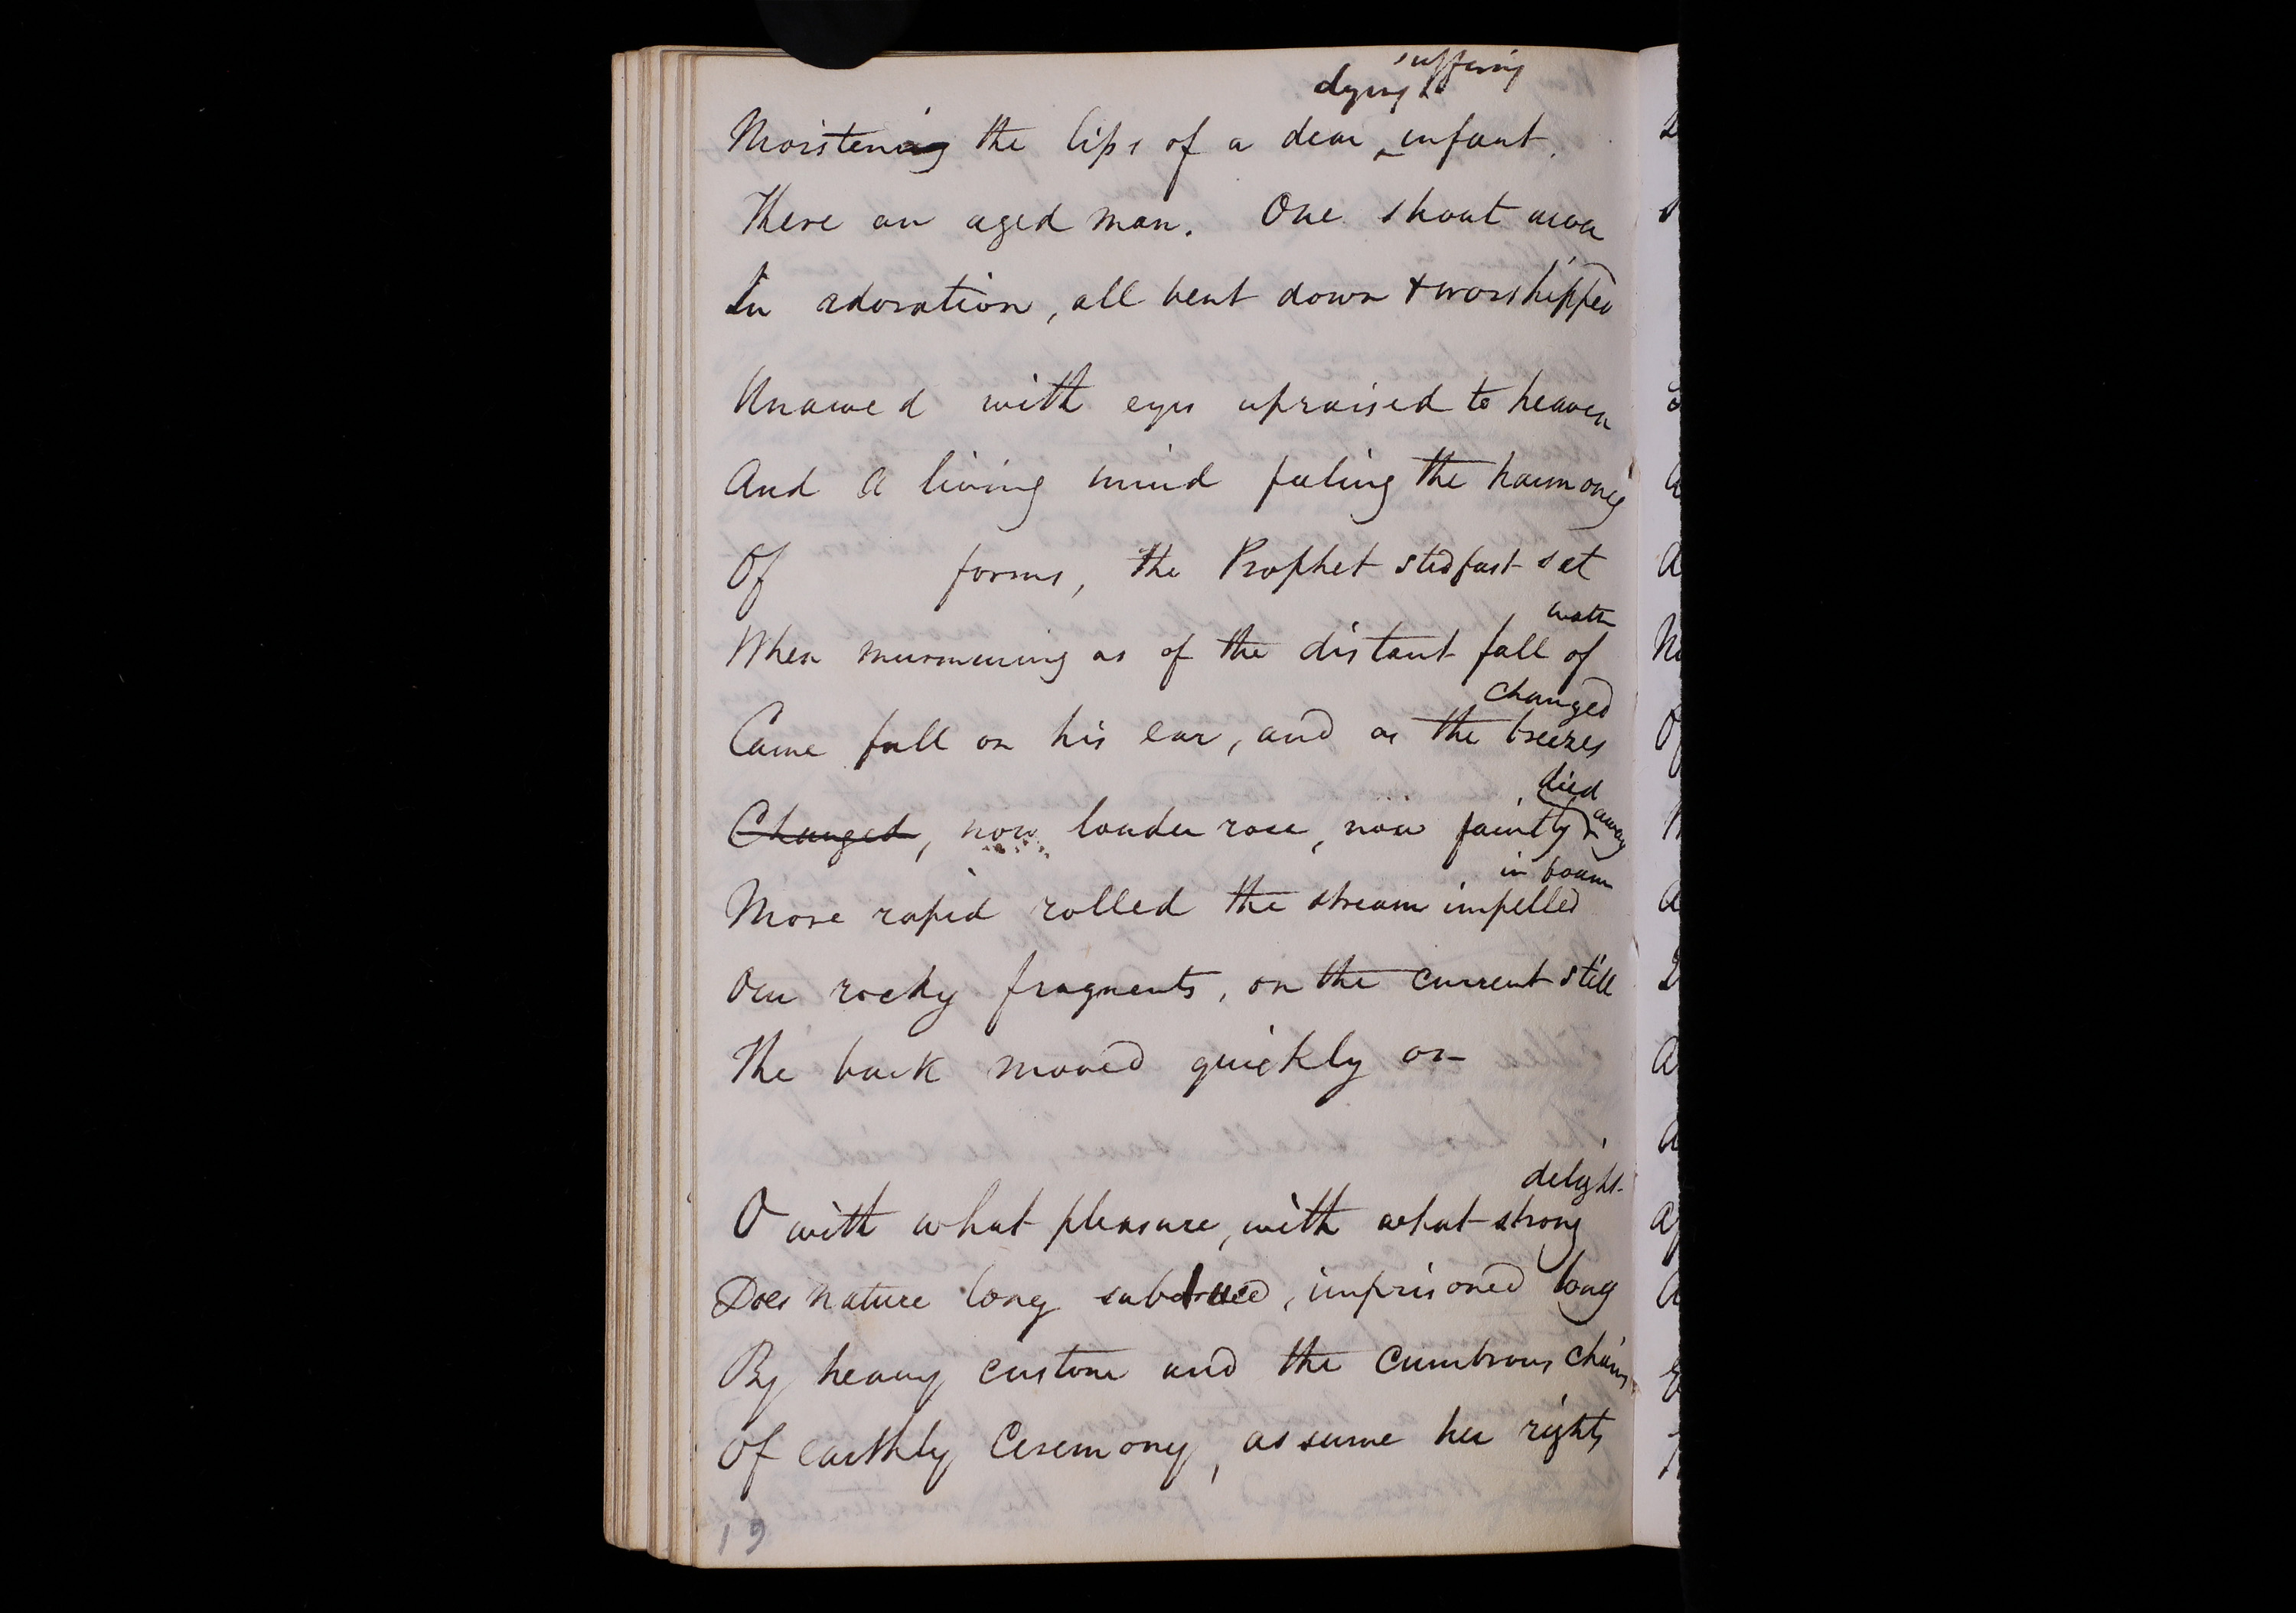 suffering
dying &
Moistening the lips of a dear infant.
There an aged man. One shout arose
In adoration, all bent down & worshipped
Unawed with eyes upraised to heaven
And a living mind feeling the harmony
Of forms, the Prophet stedfast sat
water
When murmuring as of the distant fall of
changed
Came full on his ear, and as the breezes
died away
Changed, now louder rose, now faintly
in foam
More rapid rolled the stream impelled
Over rocky fragments, on the current still
The bark moved quickly on
delight
O with what pleasure, with what strong
Does nature long subdued, imprisoned long
By heavy custom and the cumbrous chains
Of earthly Ceremony, assume her rights
19